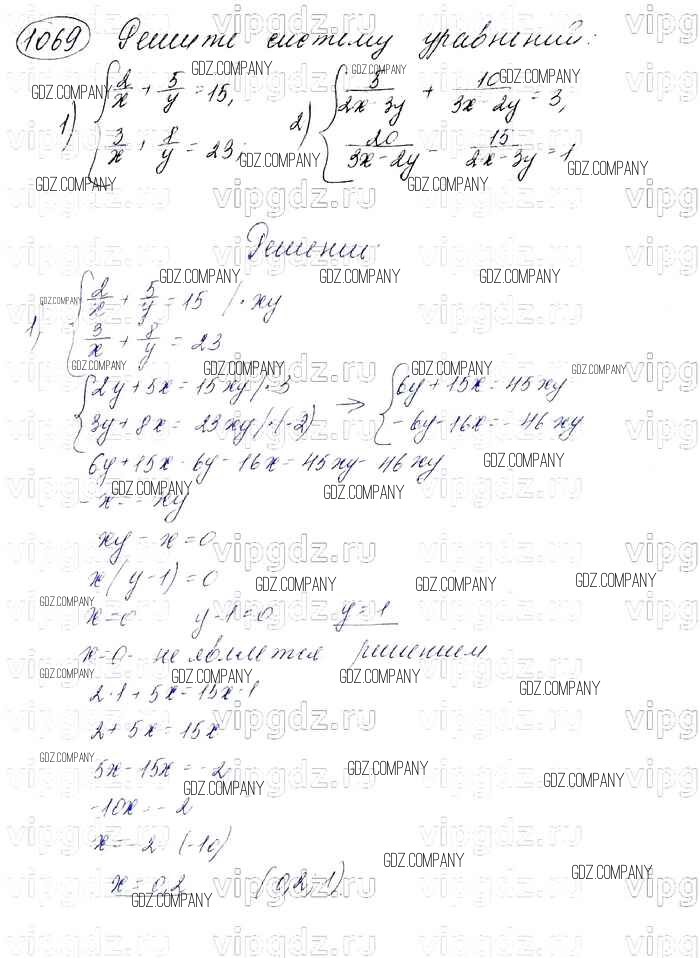 1069 Решите систему уравнений:
1) { 2/x + 5/y = 15,
3/x + 8/y = 23;
2) { 5/(2x-3y) + 10/(3x-2y) = 3,
20/(3x-2y) - 15/(2x-3y) = 1
Решение:
1) { 2/x + 5/y = 15 | · xy
3/x + 8/y = 23
{ 2y + 5x = 15xy | · 3
3y + 8x = 23xy | · (-2)
=> { 6y + 15x = 45xy
-6y - 16x = -46xy
6y + 15x - 6y - 16x = 45xy - 46xy
-x = -xy
xy - x = 0
x(y-1) = 0
x = 0 y-1 = 0 y = 1
x = 0 - не является решением
2·1 + 5x = 15x·1
2 + 5x = 15x
5x - 15x = -2
-10x = -2
x = -2 : (-10)
x = 0,2 (0,2; 1)
GDZ.COMPANY
vipgdz.ru